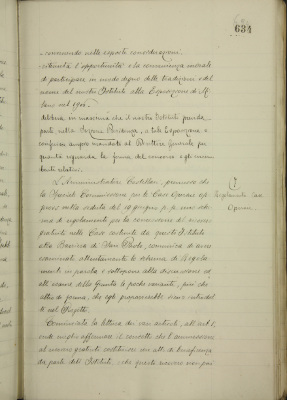 634
convenendo nelle esposte considerazioni
ritenuta l'opportunità e la convenienza morale
di partecipare in modo degno delle tradizioni e del
nome del nostro Istituto alla Esposizione di Mi
lano nel 1906
delibera in massima che il nostro Istituto prenda
parte, nella Sezione Previdenza, a tale Esposizione e
conferisce ampio mandato al Direttore Generale per
quanto riguarda la forma del concorso e gli inca
richi relativi.
L'Amministratore Castellini, premesso che
la Speciale Commissione per le Case Operaie ap
provò nella seduta del 19 giugno p. p. uno sche
ma di regolamento per la concessione del ricovero
gratuito nelle Case costruite da questo Istituto
alla Barriera di San Paolo, comunica di aver
esaminato attentamente lo schema di Regola
mento in parola e sottopone alla discussione ed
all'esame della Giunta le poche varianti, più che
altro di forma, che egli proporrebbe siano introdot
te nel Progetto.
Regolamento Case
Operaie
Cominciata la lettura dei vari articoli, all'art. 1,
onde meglio affermare il concetto che l'ammissione
al ricovero gratuito costituisce un atto di beneficenza
da parte dell'Istituto, e che questo ricovero non può